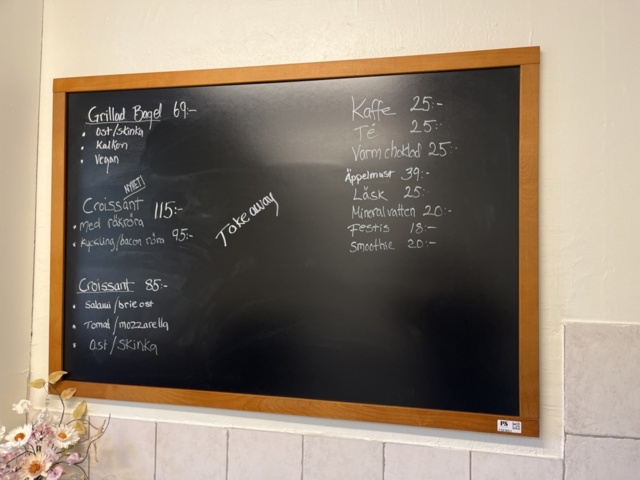 Grillad Bagel 69:-
• Ost/Skinka
• Kalkon
• Vegan
NYHET
Croissant 115:-
• med räkröra
• Kyckling/bacon röra 95:-
Croissant 85:-
• Salami/brie ost
• Tomat/mozzarella
• Ost/Skinka
Take away
Kaffe 25:-
Té 25:-
Varm choklad 25:-
Äppelmust 39:-
Läsk 25:-
Mineralvatten 20:-
Festis 18:-
Smoothie 20:-
PS